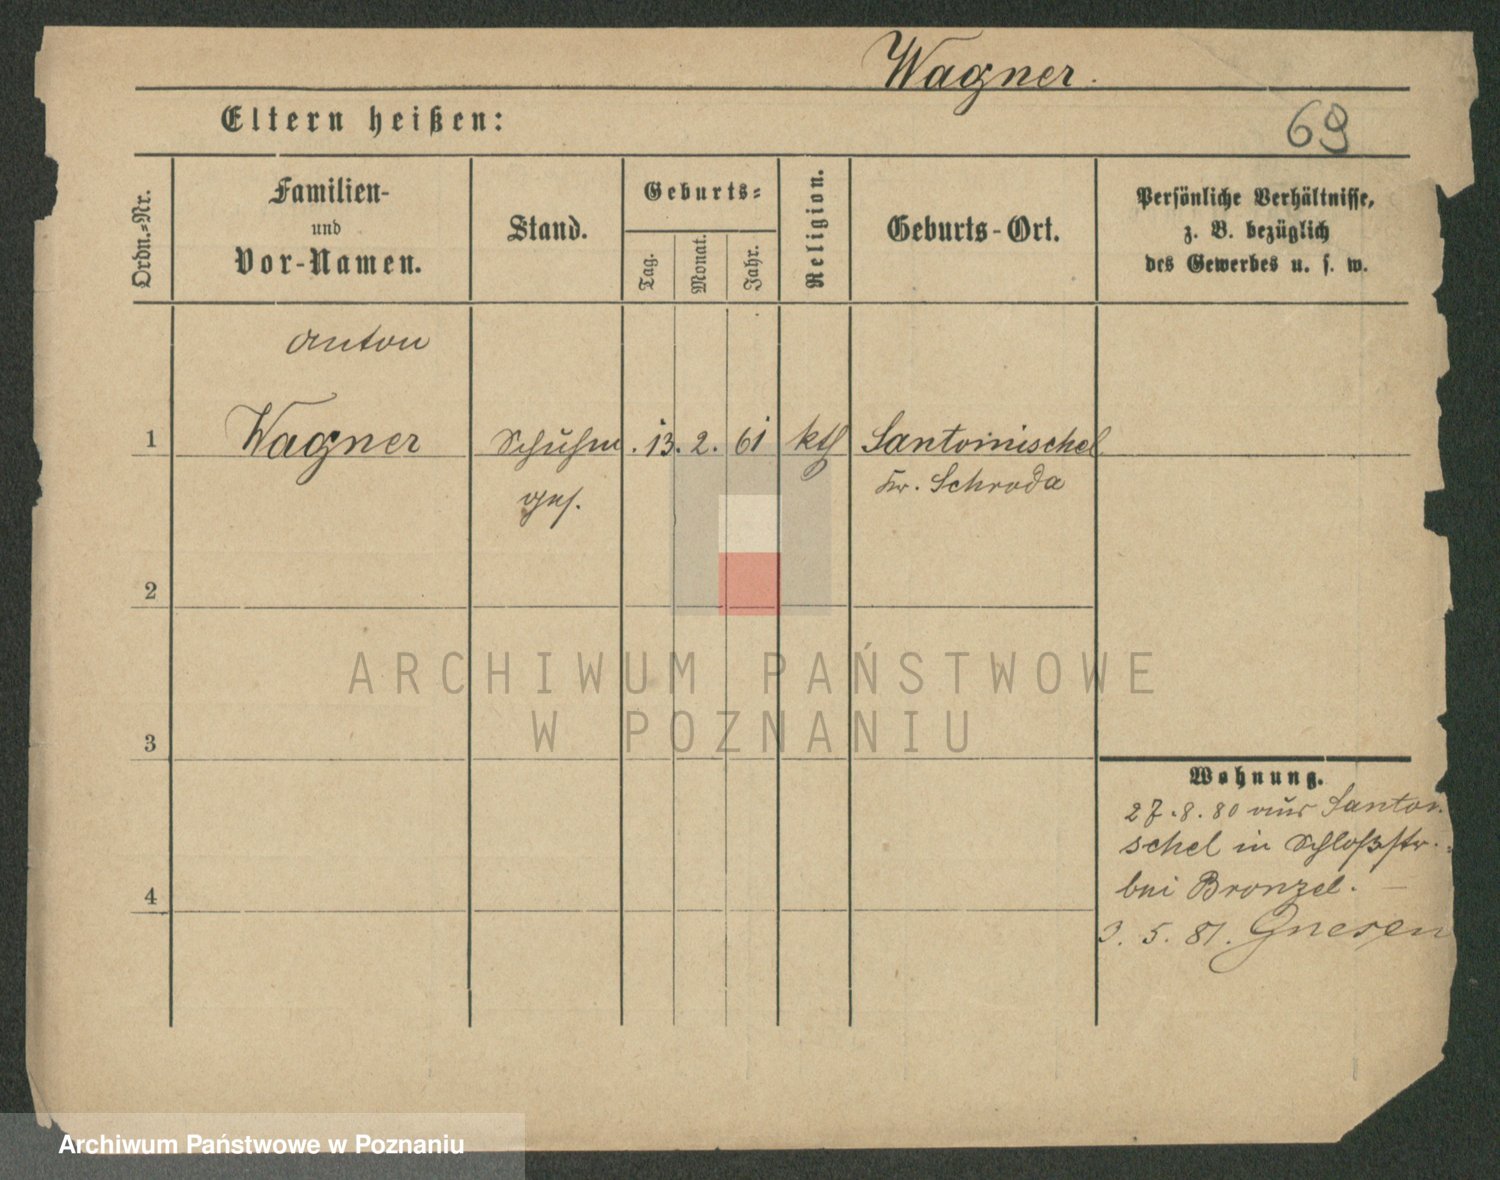 Wagner.
Eltern heißen:
69
Ordn.-Nr.
Familien-
und
Vor-Namen.
Stand.
Geburts-
Tag.
Monat.
Jahr.
Religion.
Geburts-Ort.
Persönliche Verhältnisse,
z. B. bezüglich
des Gewerbes u. s. w.
Anton
1 Wagner Schuhm. 13. 2. 61 kth Santomischel
ges. Kr. Schroda
2
3
4
Wohnung.
27.8.80 aus Santom
schel in Schloßstr.
bei Bronzel.
3. 5. 81. Gnesen
ARCHIWUM PAŃSTWOWE
W POZNANIU
Archiwum Państwowe w Poznaniu